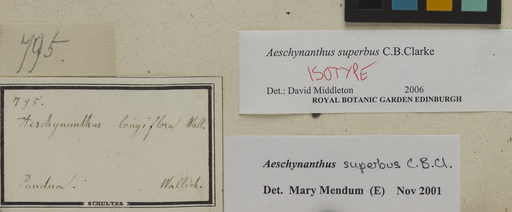 795.
795.
Aeschynanthus longiflora Wall.
Pundua. Wallich.
SCHULTES
Aeschynanthus superbus C.B.Clarke
ISOTYPE
Det.: David Middleton 2006
ROYAL BOTANIC GARDEN EDINBURGH
Aeschynanthus superbus C.B.Cl.
Det. Mary Mendum (E) Nov 2001